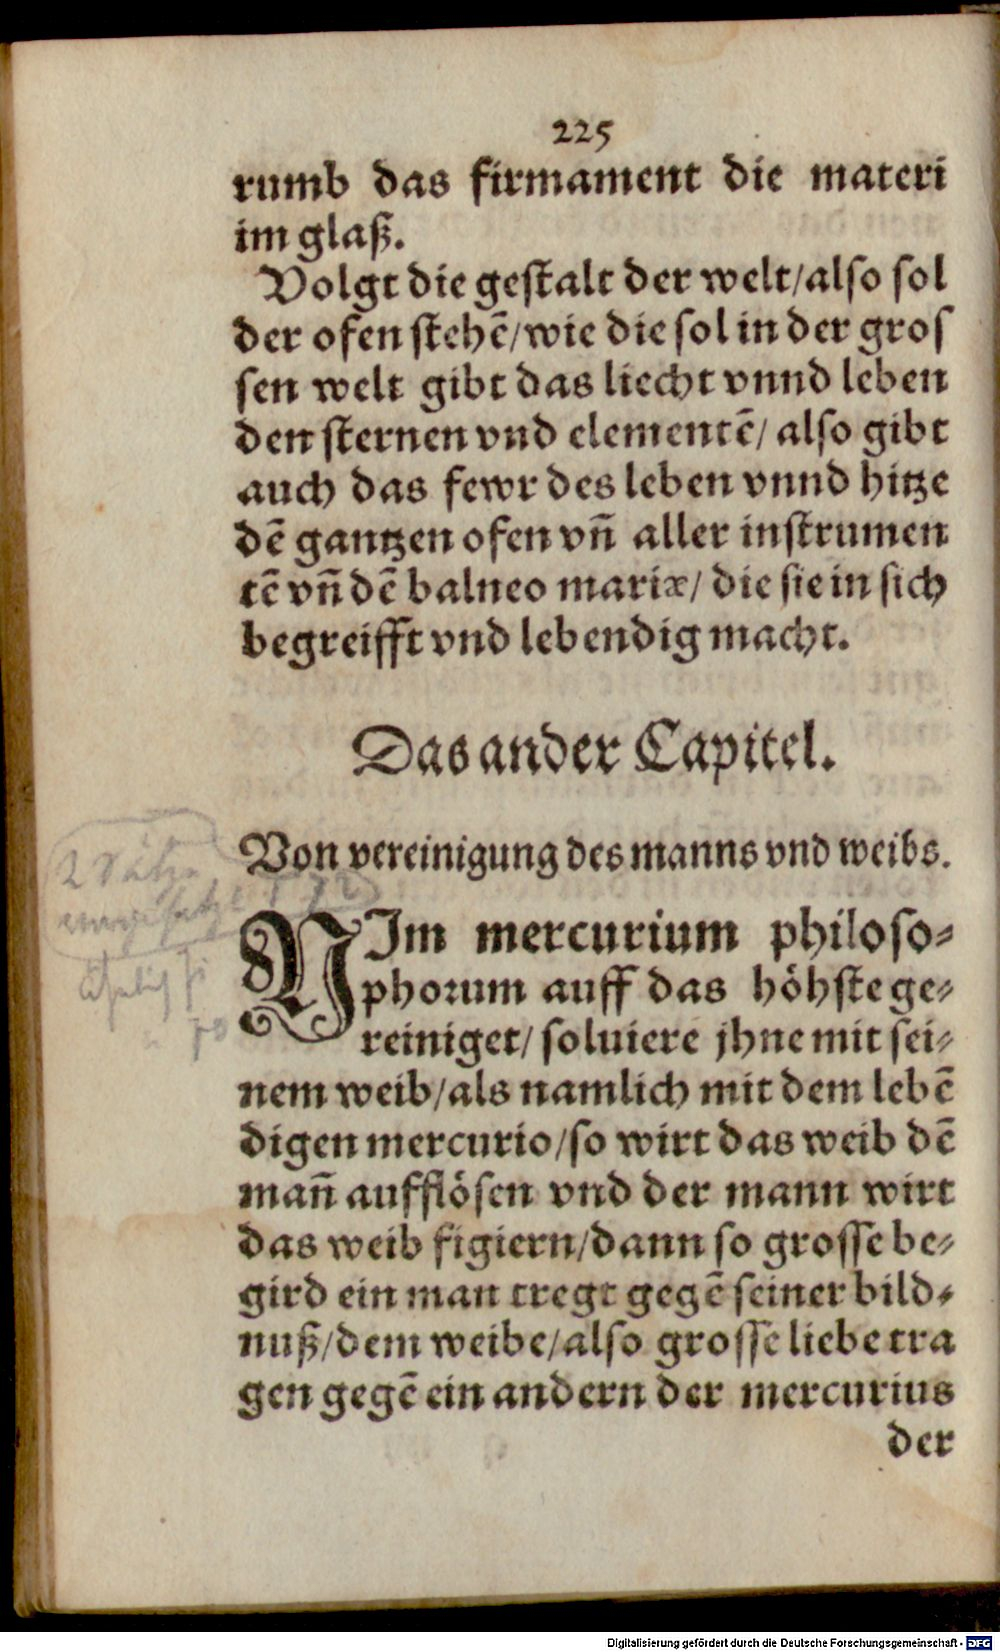 225
rumb das firmament die materi
im glaß.
Volgt die gestalt der welt/also sol
der ofen stehē/wie die sol in der gros
sen welt gibt das liecht vnnd leben
den sternen vnd elementē/ also gibt
auch das fewr des leben vnnd hitze
dē gantzen ofen vñ aller instrumen
tē vñ dē balneo mariæ/ die sie in sich
begreifft vnd lebendig macht.
Das ander Capitel.
Von vereinigung des manns vnd weibs.
NIm mercurium philoso-
phorum auff das höhste ge-
reiniget/ soluiere jhne mit sei-
nem weib/als namlich mit dem lebē
digen mercurio/so wirt das weib dē
mañ aufflösen vnd der mann wirt
das weib figiern/dann so grosse be-
gird ein man tregt gegē seiner bild-
nuß/dem weibe/also grosse liebe tra
gen gegē ein andern der mercurius
der
2 Sätze
Digitalisierung gefördert durch die Deutsche Forschungsgemeinschaft - DFG